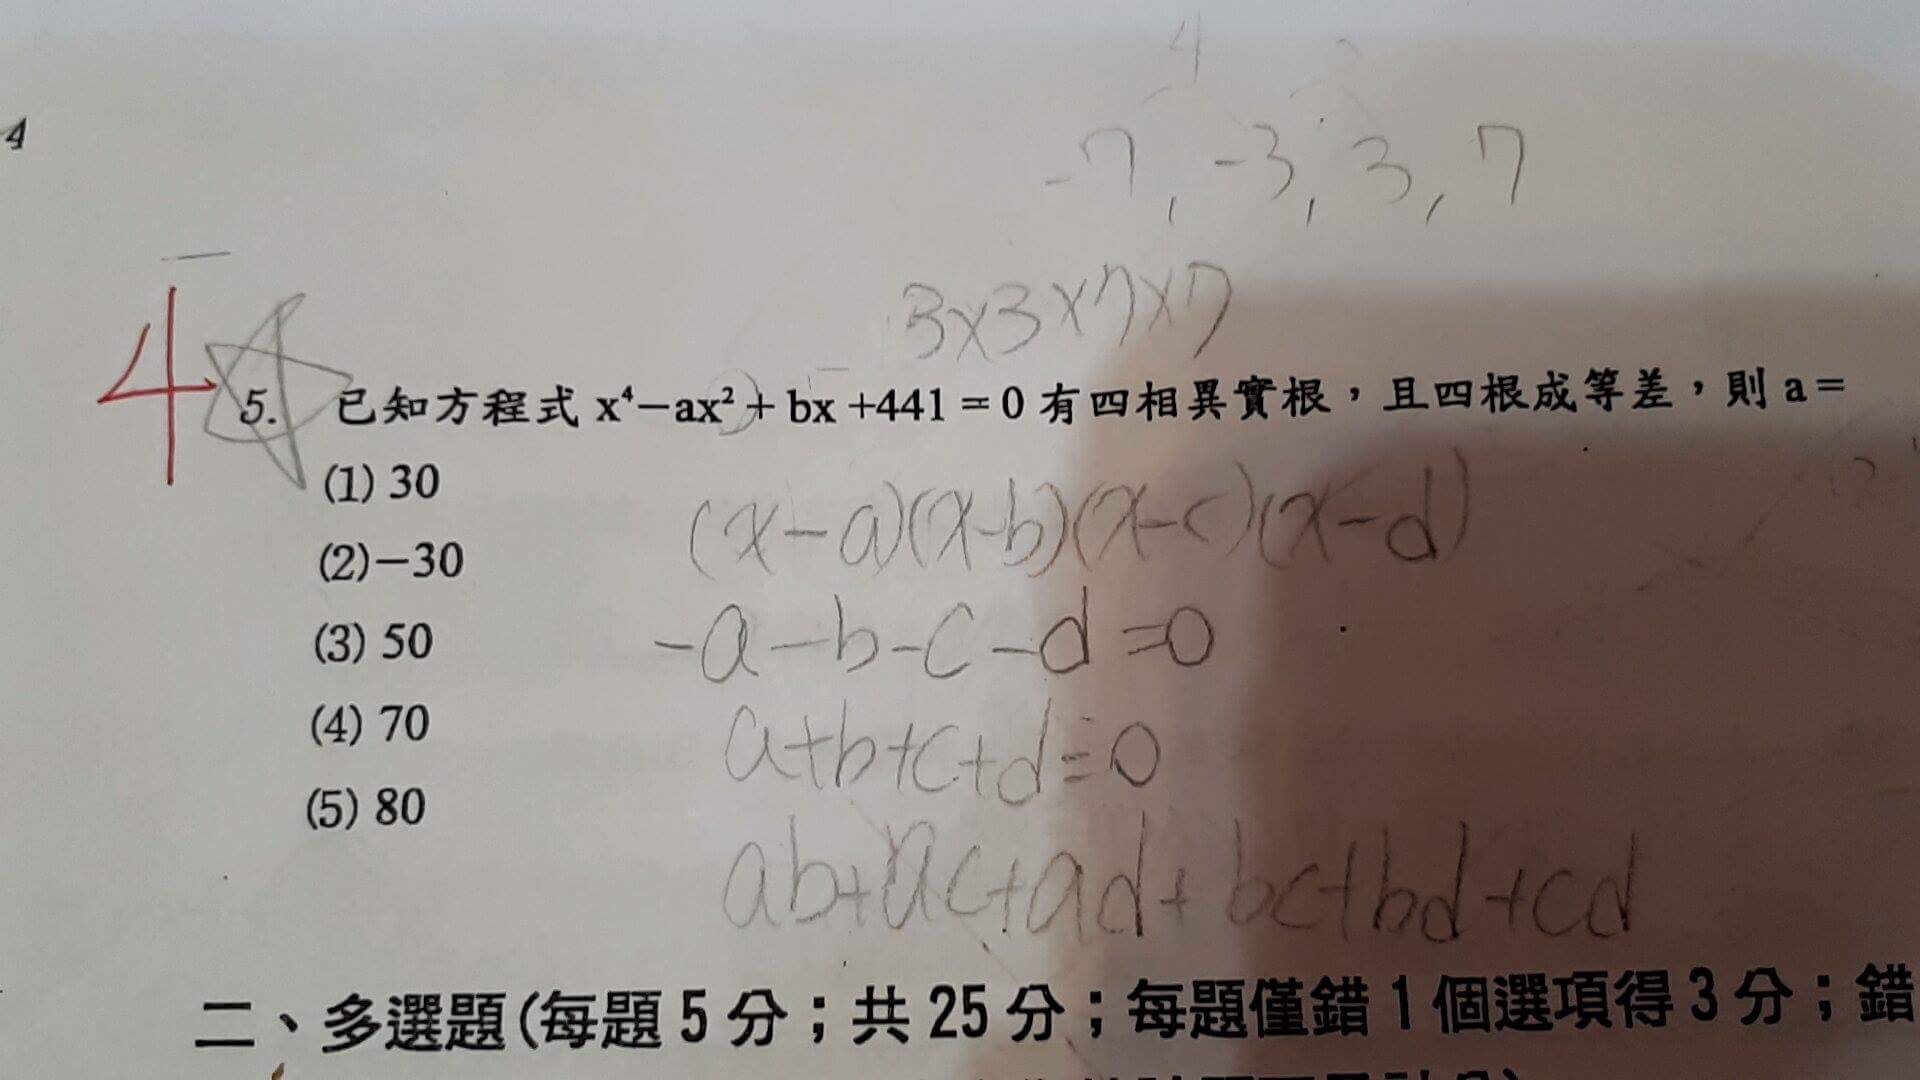 4
4
-7, -3, 3, 7
3×3×7×7
4
5. 已知方程式 x⁴−ax²+ bx +441 = 0 有四相異實根，且四根成等差，則 a =
(1) 30
(x-a)(x-b)(x-c)(x-d)
(2)−30
-a-b-c-d=0
(3) 50
(4) 70
a+b+c+d=0
(5) 80
ab+ac+ad+bc+bd+cd
二、多選題(每題 5 分；共 25 分；每題僅錯 1 個選項得 3 分；錯